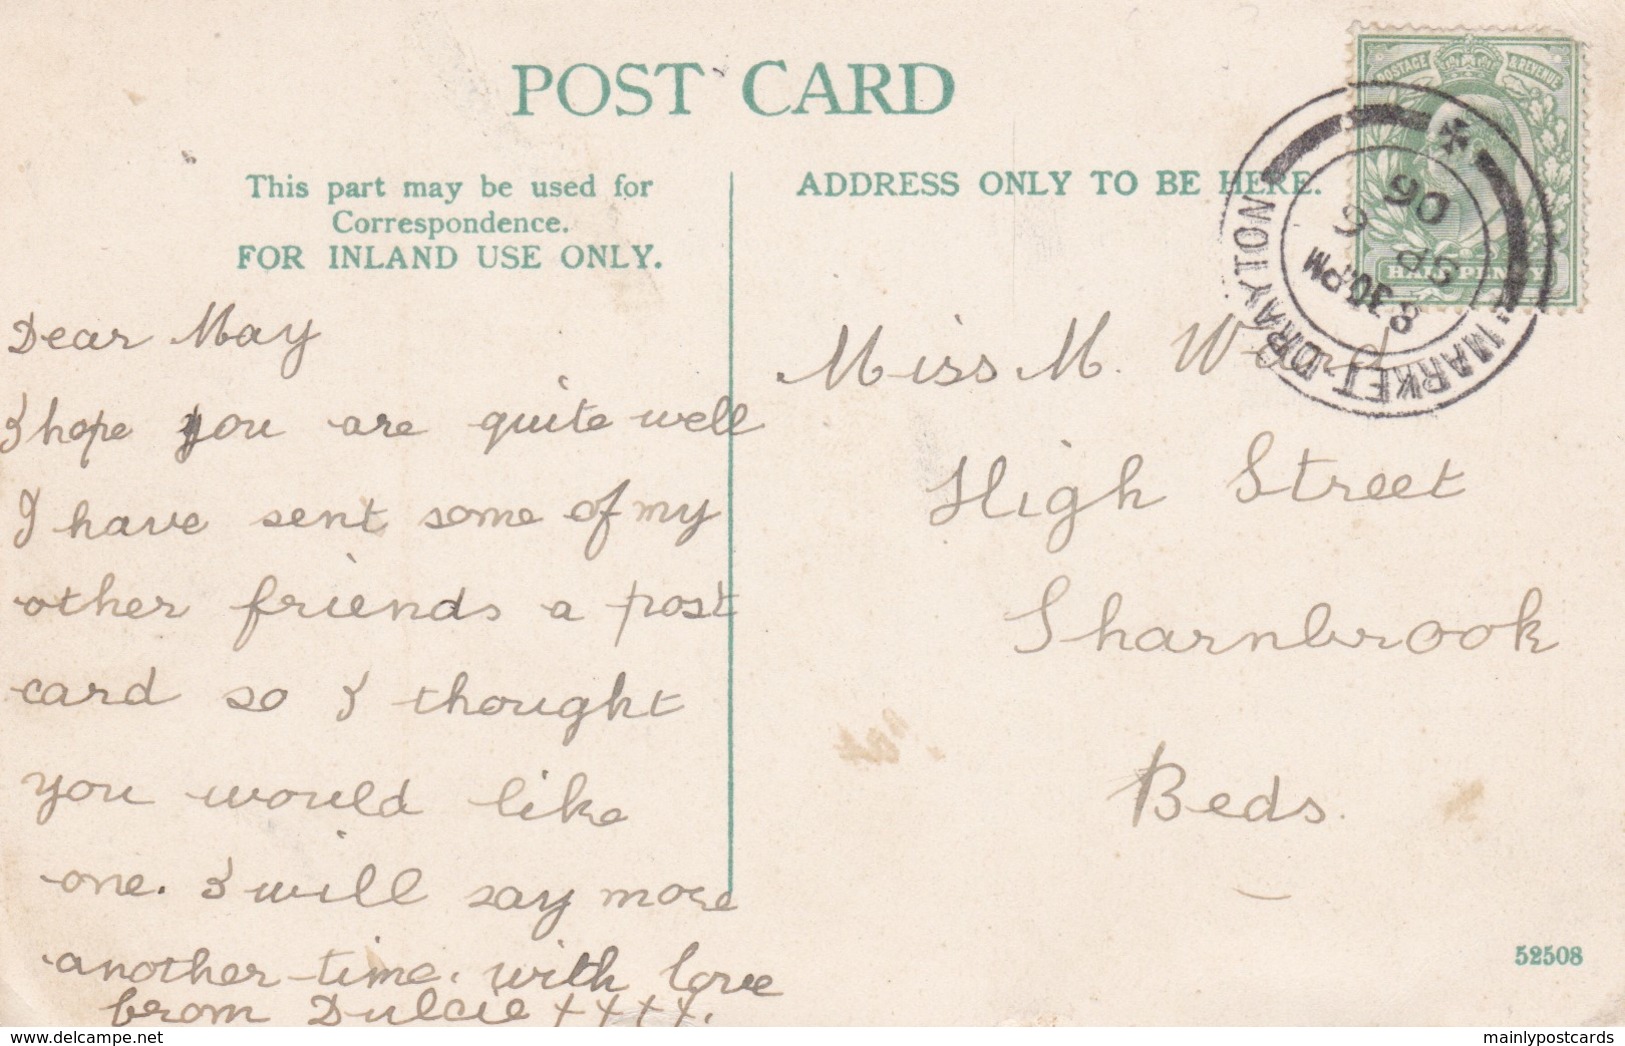 POST CARD
This part may be used for
Correspondence.
FOR INLAND USE ONLY.
ADDRESS ONLY TO BE HERE.
POSTAGE & REVENUE
HALFPENNY
MARKET DRAYTON
8.30PM
SP 6
06
Dear May
I hope you are quite well
I have sent some of my
other friends a post
card so I thought
you would like
one. I will say more
another time. with love
from Dulcie ++++.
Miss M. Ward
High Street
Sharnbrook
Beds.
52508
delcampe.net
mainlypostcards